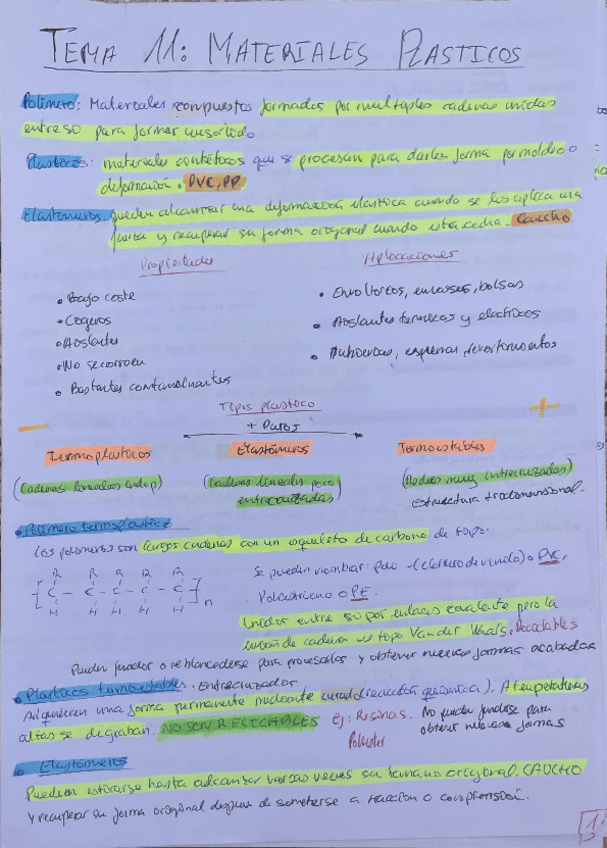 TEMA 11: MATERIALES PLASTICOS
Polimero: Materiales compuestos formados por multiples cadenas unidas
entre si para formar un solido
Plasticos: materiales sintéticos que se procesan para darles forma por moldeo o
deformación. PVC, PP
Elastomeros: pueden alcanzar una deformacion elastica cuando se les aplica una
fuerza y recuperar su forma original cuando esta cede. Caucho.
Propiedades
Aplicaciones
• Bajo coste
• Ligeros
• Aislantes
• No se corroen
• Bastantes contaminantes
• Envoltorios, envases, bolsas
• Aislantes termicos y electricos
• Adhesivos, espumas, revestimientos
Tipos plastico
- + Duros +
Termoplasticos
Elastómeros
Termoestables
(Cadenas lineales indep)
(Cadenas lineales poco
entrecruzadas)
(Redes muy entrecruzadas)
Estructura tridimensional.
• Polimero termoplastico
Los polimeros son largas cadenas con un esqueleto de carbono de tipo:
R R R R R
[ C - C - C - C - C ] n
H H H H H
Se pueden nombrar: poli-(cloruro de vinilo) o PVC,
Polietileno o PE.
Unidos entre si por enlaces covalente pero la
union de cadena es tipo Van der Waals. Reciclables
Pueden fundir o reblandecerse para procesarlos y obtener nuevas formas acabadas
• Plasticos termoestables. Entrecruzados
Adquieren una forma permanente mediante curado (reacción quimica). A temperaturas
altas se degradan. NO SON RECICLABLES
ej: Resinas.
Poliester
No pueden fundirse para
obtener nuevas formas
• Elastómeros
Pueden estirarse hasta alcanzar varias veces su tamaño original. CAUCHO
y recuperar su forma original despues de someterse a traccion o compresión.
1